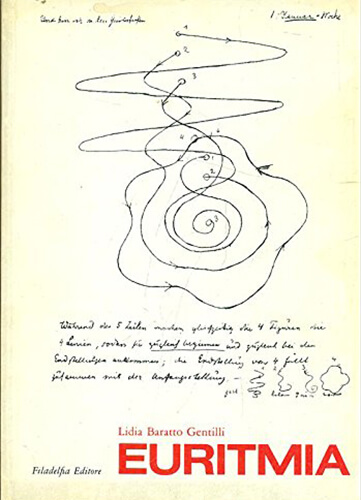 1. Januar-Woche
1
2
3
4 4
1
2
3
Während der 5 Zeilen machen gleichzeitig die 4 Figuren die
4 Linien, sodass sie zugleich beginnen und zugleich bei den
Endstellungen ankommen; die Endstellung von 4 fällt
zusammen mit der Anfangsstellung —
Lidia Baratto Gentilli
Filadelfia Editore
EURITMIA